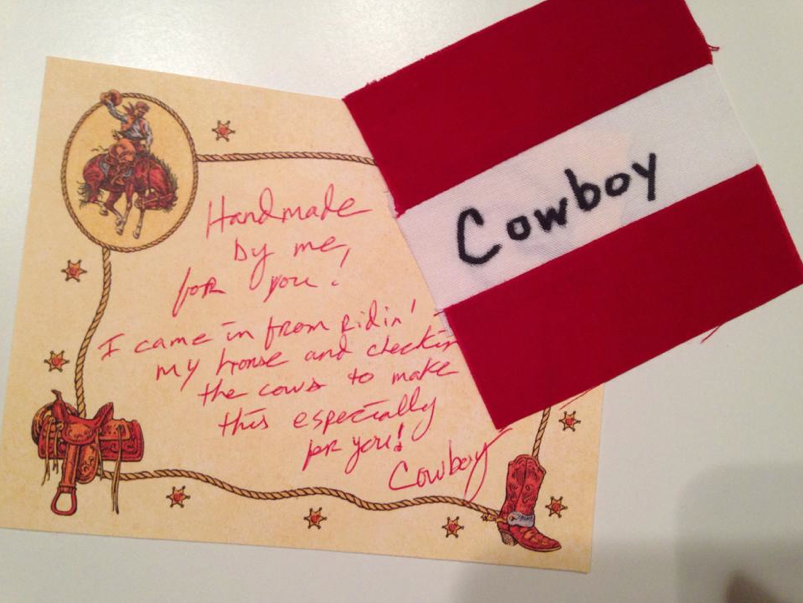 Handmade
by me,
for you!
I came in from ridin'
my horse and checkin
the cows to make
this especially
for you!
Cowboy
Cowboy